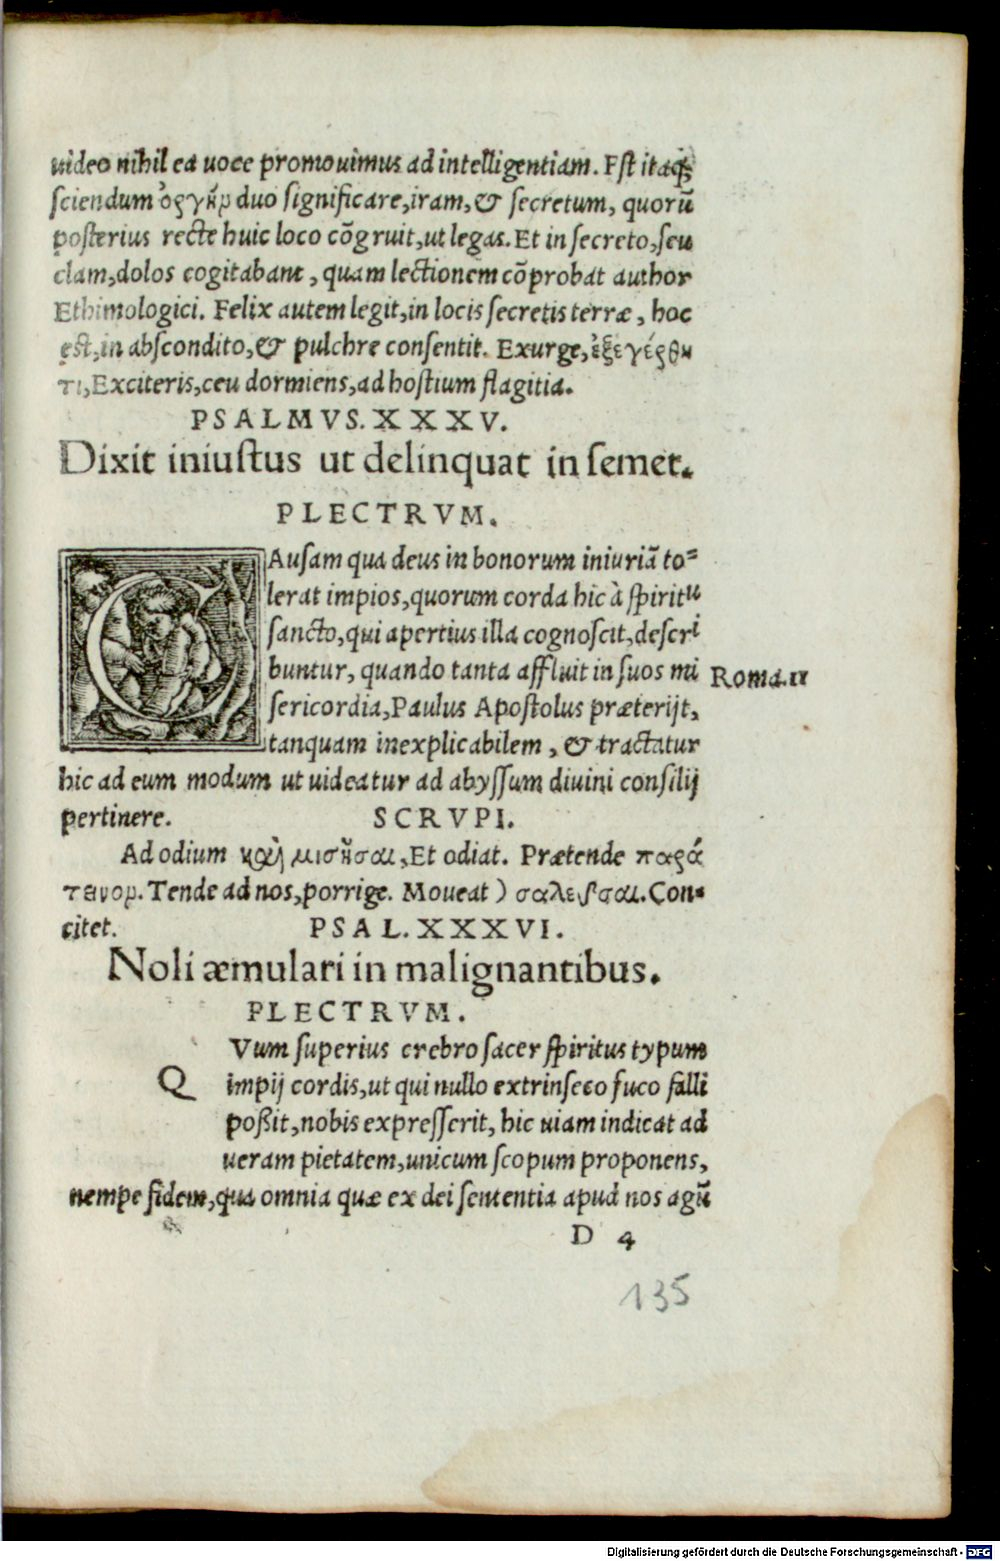 uideo nihil ea uoce promouimus ad intelligentiam. Est itaq;
sciendum ὀργὴν duo significare, iram, & secretum, quorū
posterius recte huic loco cōgruit, ut legas. Et in secreto, seu
clam, dolos cogitabant, quam lectionem cōprobat author
Ethimologici. Felix autem legit, in locis secretis terræ, hoc
est, in abscondito, & pulchre consentit. Exurge, ἐξεγέρθη
τι, Exciteris, ceu dormiens, ad hostium flagitia.
PSALMVS. XXXV.
Dixit iniustus ut delinquat in semet.
PLECTRVM.
CAusam qua deus in bonorum iniuriā to=
lerat impios, quorum corda hic à spiritu
sancto, qui apertius illa cognoscit, descri
buntur, quando tanta affluit in suos mi
Roma. 11
sericordia, Paulus Apostolus præterijt,
tanquam inexplicabilem, & tractatur
hic ad eum modum ut uideatur ad abyssum diuini consilij
pertinere. SCRVPI.
Ad odium καὶ μισῆσαι, Et odiat. Prætende παρά
τεινον. Tende ad nos, porrige. Moueat) σαλεῦσαι. Con-
citet. PSAL. XXXVI.
Noli æmulari in malignantibus.
PLECTRVM.
QVum superius crebro sacer spiritus typum
impij cordis, ut qui nullo extrinseco fuco falli
poßit, nobis expresserit, hic uiam indicat ad
ueram pietatem, unicum scopum proponens,
nempe fidem, qua omnia quæ ex dei sententia apud nos agū
D 4
135
Digitalisierung gefördert durch die Deutsche Forschungsgemeinschaft - DFG